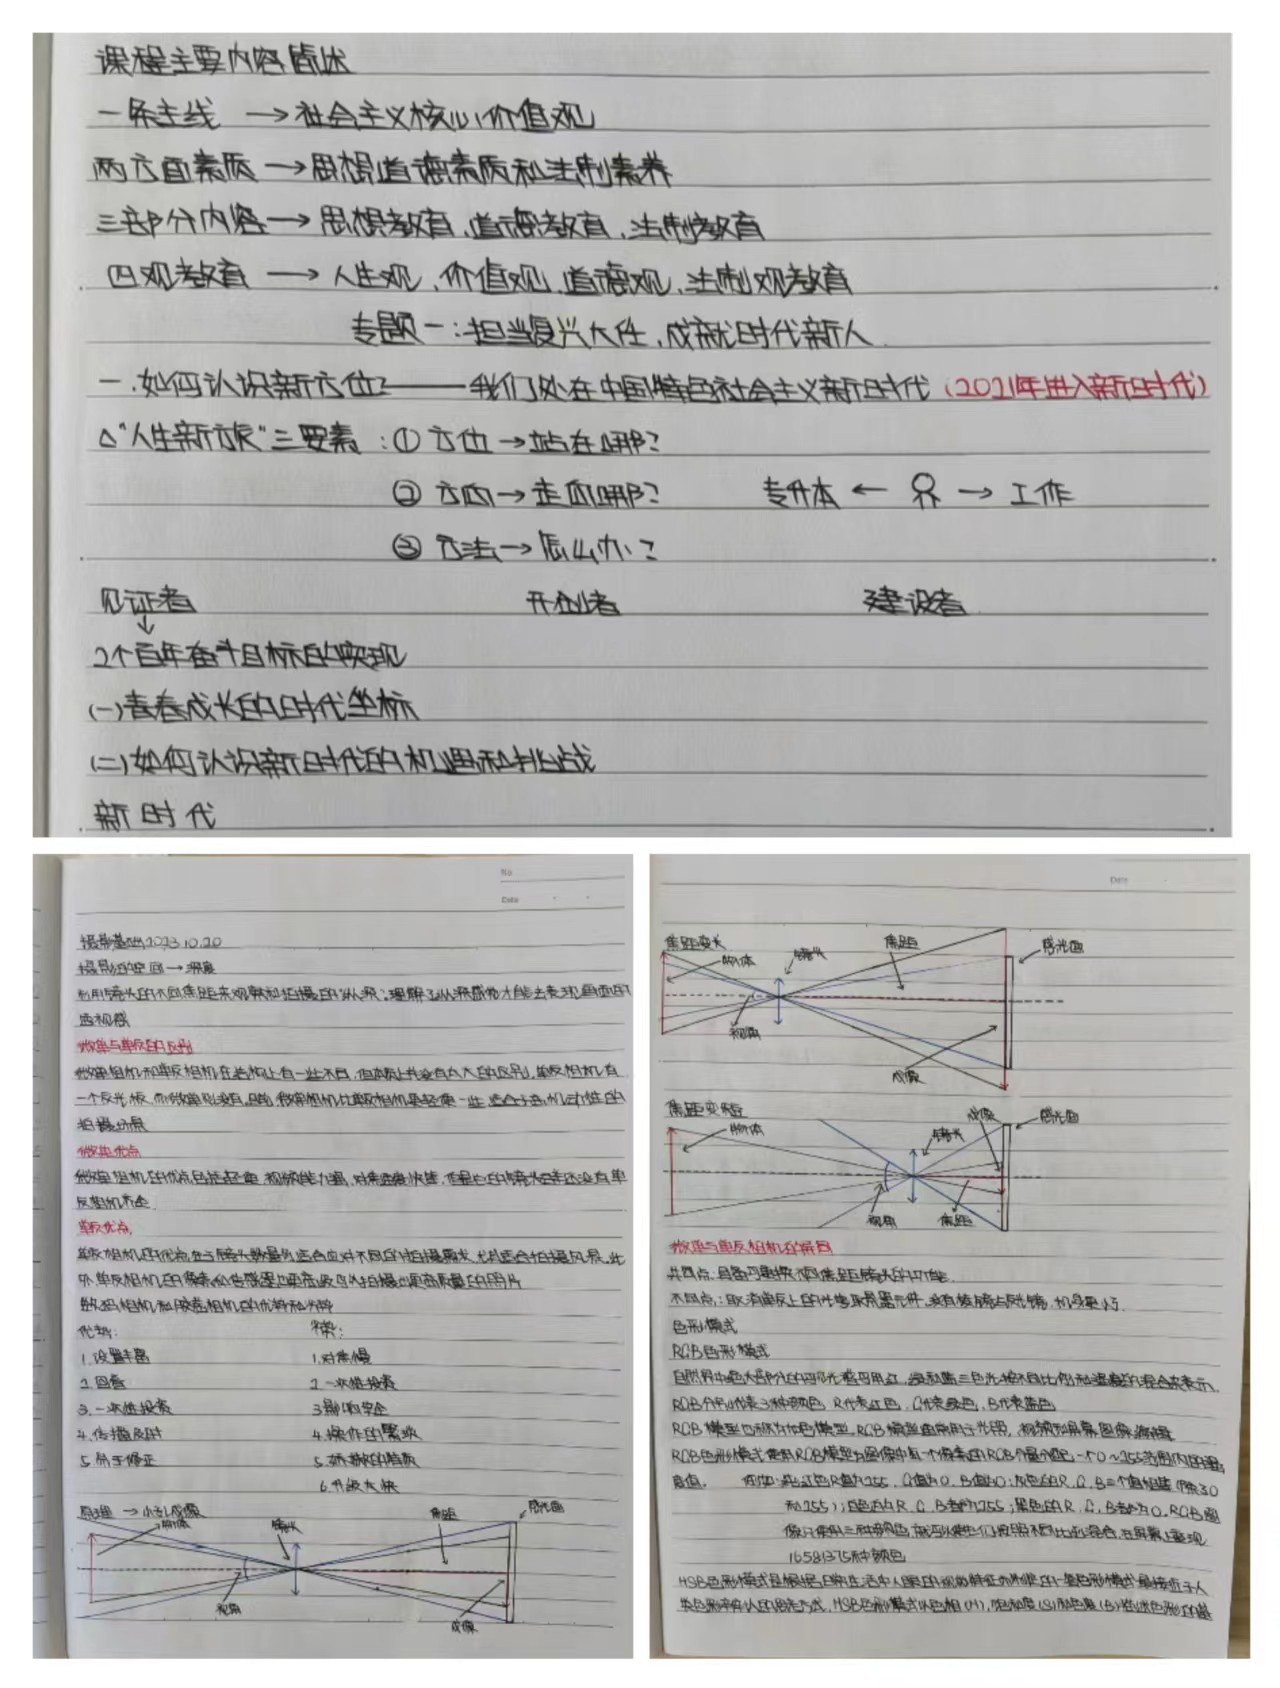 课程主要内容简述
一条主线 →社会主义核心价值观
两方面素质→思想道德素质和法制素养
三部分内容→思想教育、道德教育、法制教育
四观教育 → 人生观、价值观、道德观、法制观教育
专题一:担当复兴大任,成就时代新人
一.如何认识新方位?——我们处在中国特色社会主义新时代(2021年进入新时代)
△"人生新旅"三要素:① 方位→站在哪?
② 方向→走向哪? 专升本 ← → 工作
③ 方法→怎么办?
见证者 开创者 建设者
↓
2个百年奋斗目标的实现
(一)青春成长的时代坐标
(二)如何认识新时代的机遇和挑战
新时代
No
Date
摄影基础2023.10.20
摄影的空间→深度
利用镜头的不同焦距来观察和拍摄的纵深;理解了纵深感你才能去表现画面的
透视感
微单与单反的区别
微单相机和单反相机在结构上有一些不同,但本质上并没有太大的区别,单反相机有
一个反光板,而微单则没有,
拍摄场景
微单优点
微单相机的优点包括轻便、视频能力强,对焦速度快等,但是它的镜头
反相机齐全
单反优点
单反相机的优点在于镜头数量多,适合应对不同的拍摄需求,尤其适合拍摄风景,此
外单反相机的像素和传感器也更高级,可以拍摄出更高质量的照片
数码相机和胶卷相机的优势和劣势
优势: 劣势:
1.设置丰富 1.对焦慢
2.回看 2.一次性投资
3.一次性投资 3.影响安全
4.传播及时 4.操作的繁琐
5.易于修正 5.娇嫩的
6.升级太快
原理 → 小孔成像
物体 镜头 焦距 感光面
视角 成像
Date
焦距变长 物体 镜头 焦距 感光面
视角
成像
焦距变短 物体 镜头 成像 感光面
视角 焦距
微单与单反相机的异同
共同点:具备可更换不同焦距镜头的功能.
不同点:取消单反上的光学取景器元件,没有棱镜与反光镜,机身更小.
色彩模式
RGB色彩模式
自然界中绝大部分的可见光谱可用红、绿和蓝三色光按不同比例和强度的混合来表示.
RGB分别代表3种颜色,R代表红色,G代表绿色,B代表蓝色
RGB模型也称为加色模型,RGB模型通常用于光照、视频和屏幕图像编辑
RGB色彩模式使用RGB模型为图像中每一个像素的RGB分量分配一个0~255范围内的强
度值. 例如:纯红色R值为255,G值为0,B值为0;灰色的R、G、B三个值相等(除了0
和255);白色的R、G、B都为255;黑色的R、G、B都为0.RGB图
像只使用三种颜色,就可以使它们按照不同比例混合,在屏幕上呈现
16581375种颜色
HSB色彩模式是根据日常生活中人眼的视觉特征而制定的一套色彩模式,最接近于人
类色彩辨认的思考方式.HSB色彩模式以色相(H),饱和度(S)和亮度(B)描述色彩的基